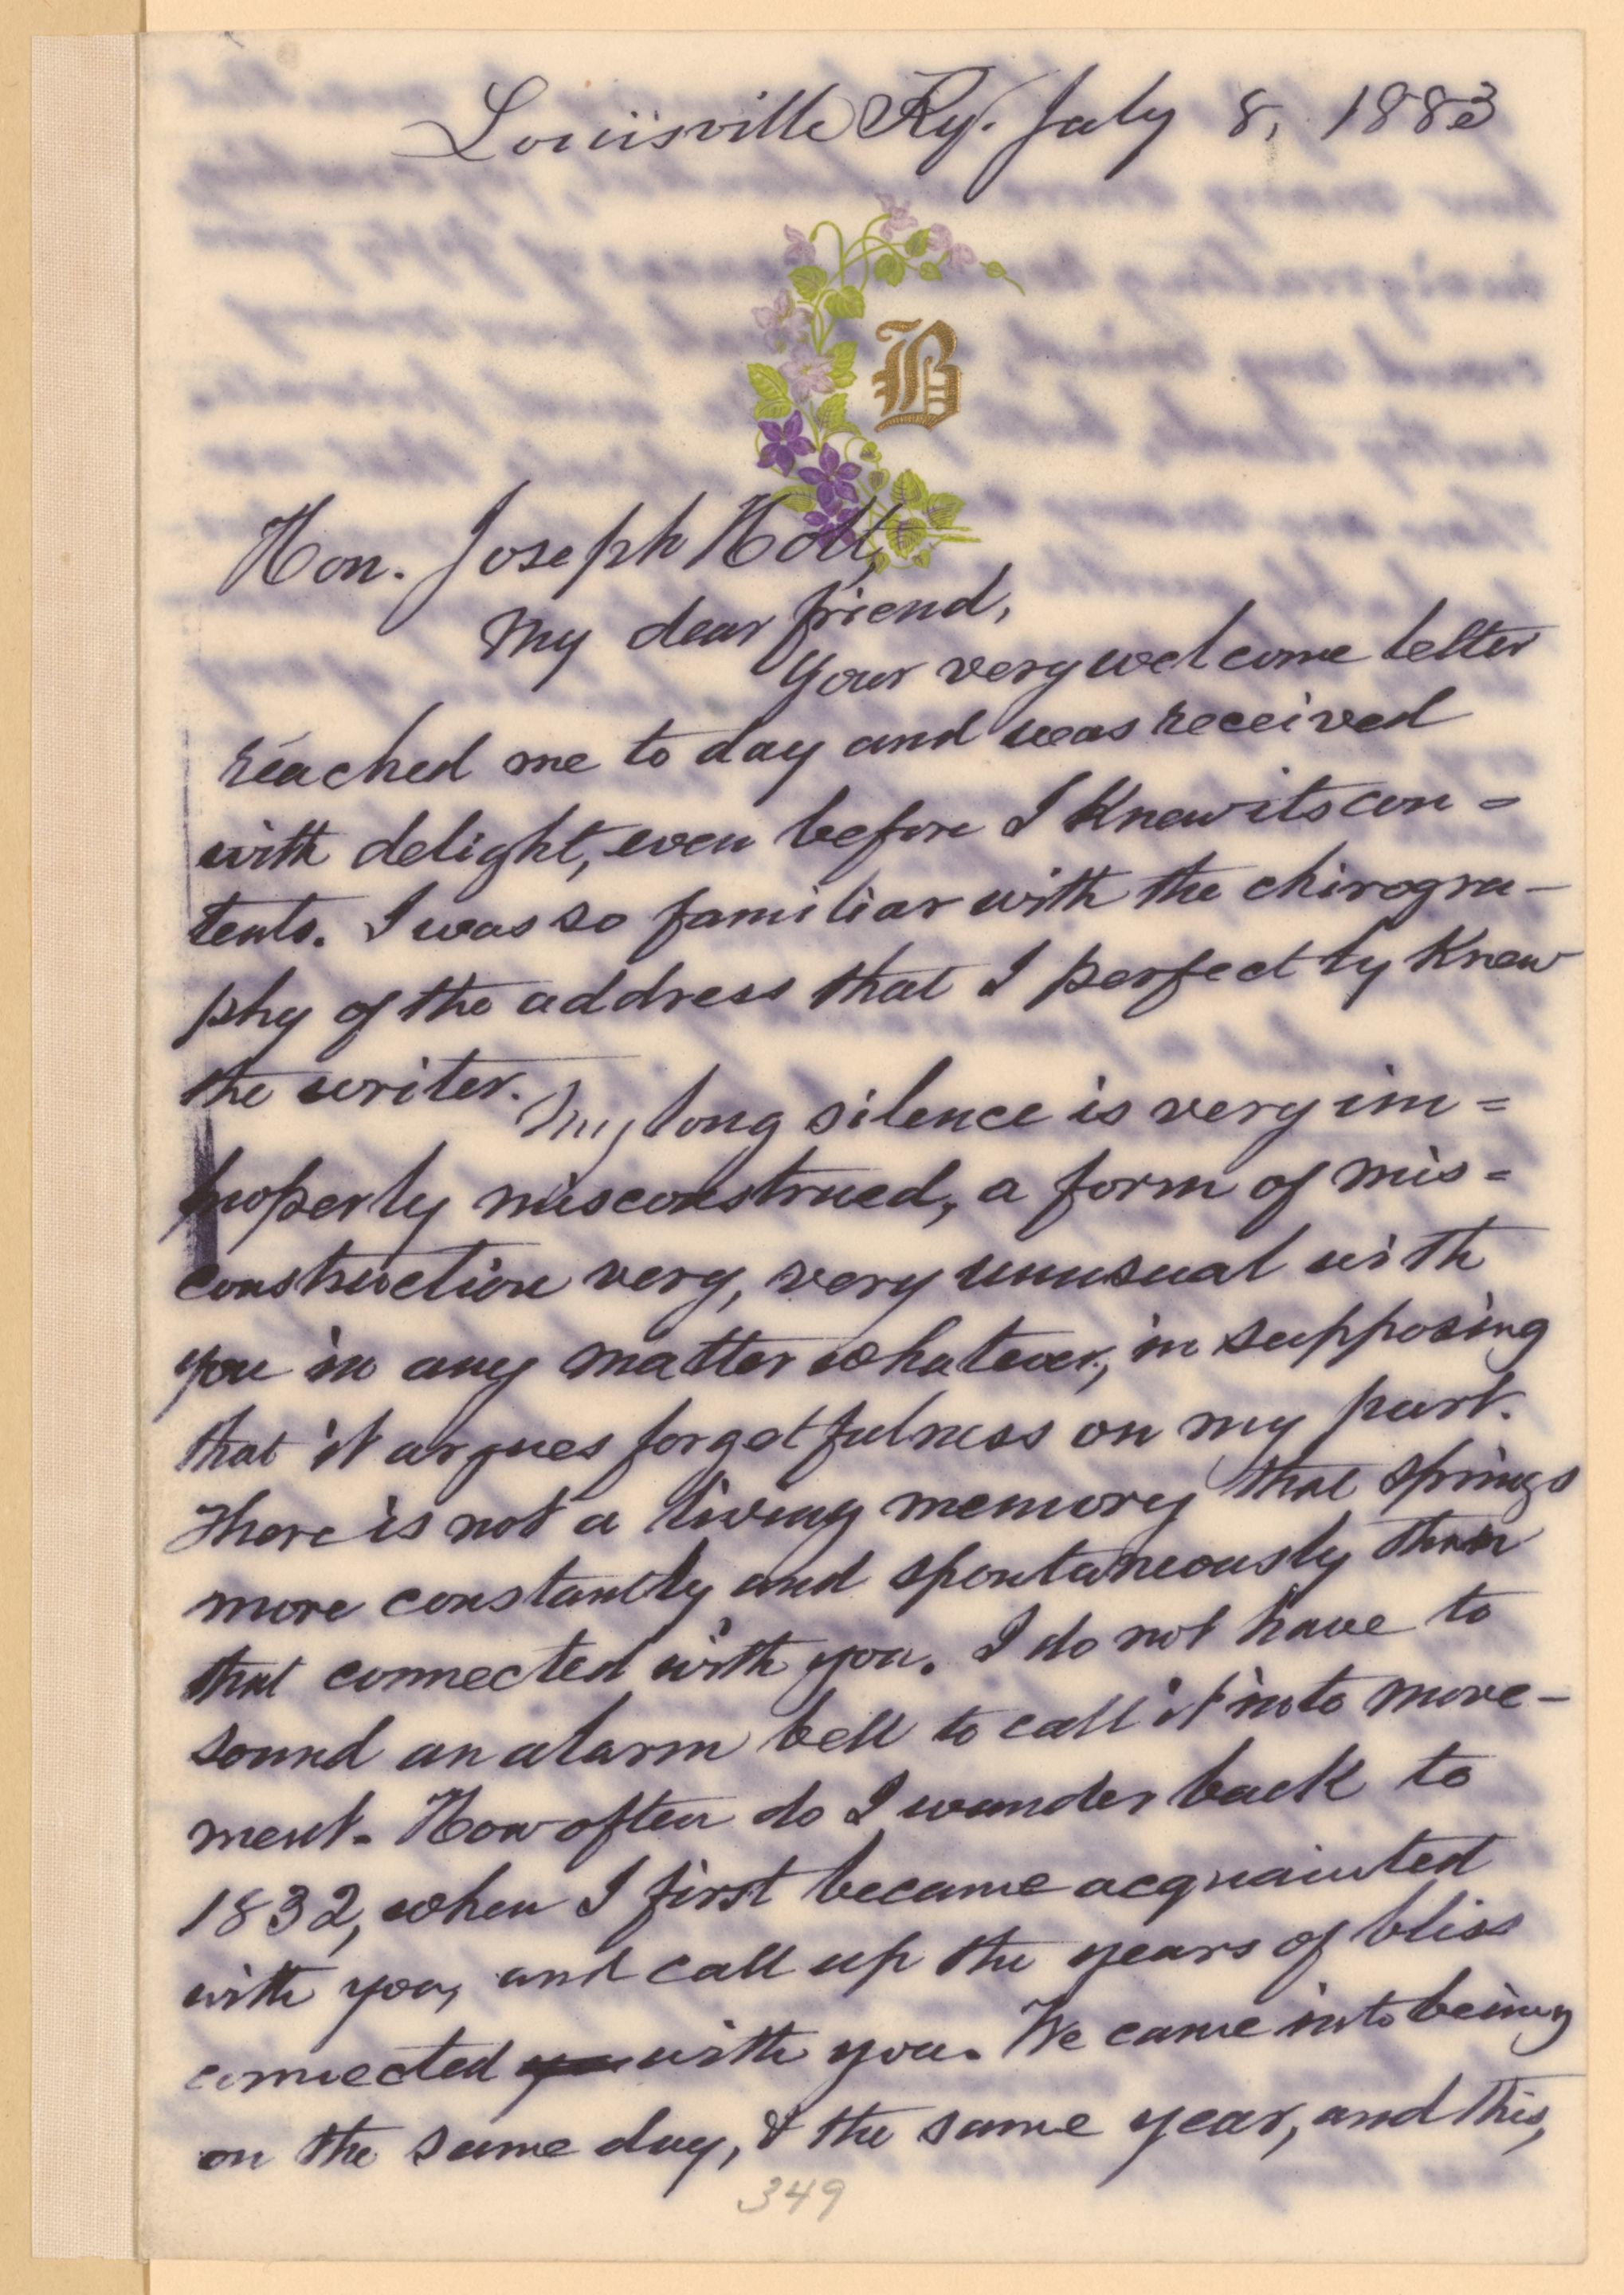 Louisville Ky. July 8, 1883
B
Hon. Joseph Holt,
My dear friend,
Your very welcome letter
reached me to day and was received
with delight, even before I knew its con=
tents. I was so familiar with the chirogra-
phy of the address that I perfectly knew
the writer. My long silence is very im=
properly misconstrued, a form of mis=
construction very, very unusual with
you in any matter whatever, in supposing
that it argues forgetfulness on my part.
There is not a living memory that springs
more constantly and spontaneously than
that connected with you. I do not have to
sound an alarm bell to call it into move-
ment. How often do I wander back to
1832, when I first became acquainted
with you, and call up the years of bliss
connected you with you. We came into being
on the same day, & the same year, and this,
349